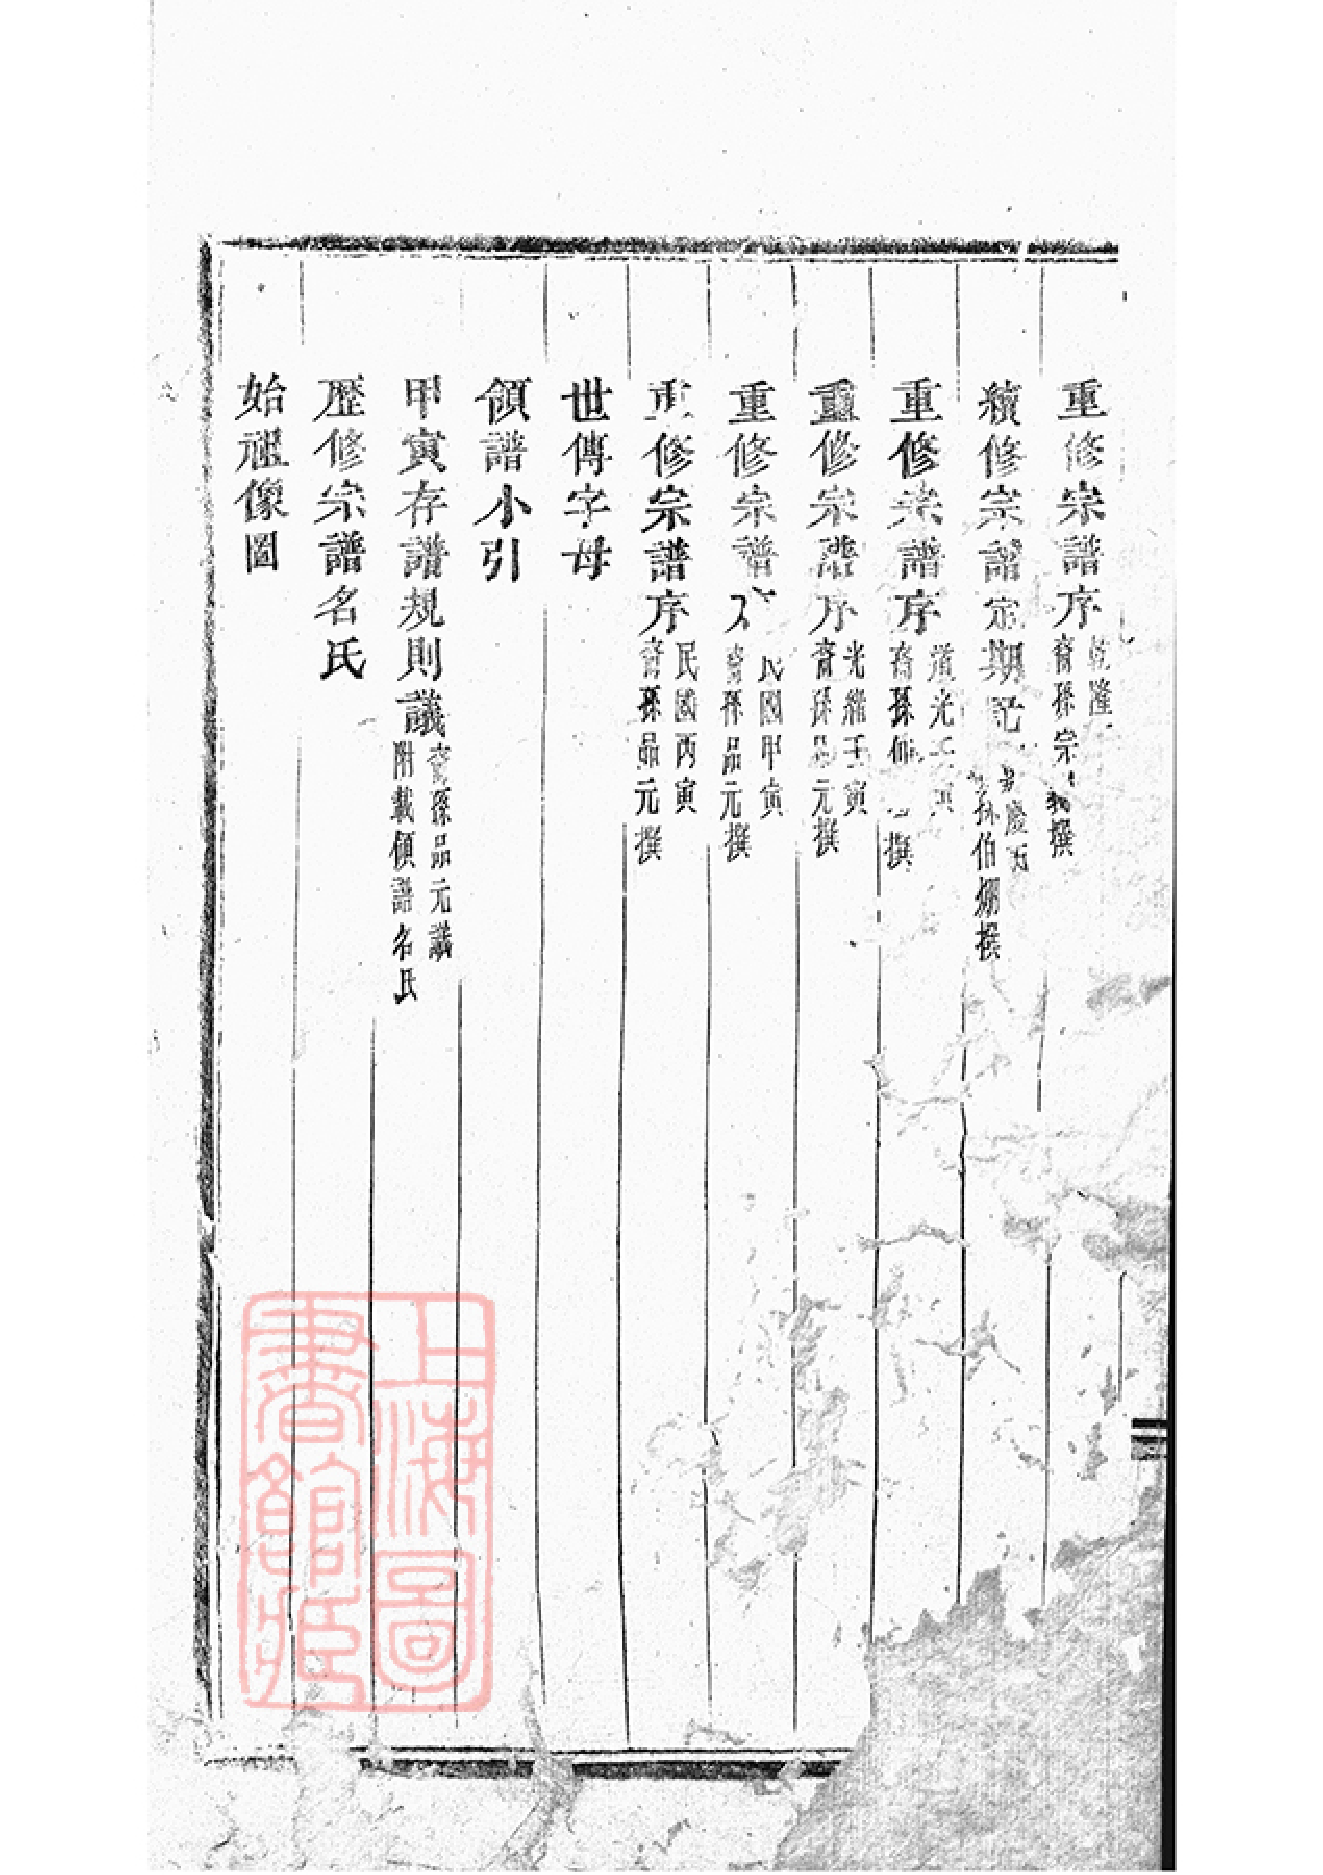 重修宗譜序 乾隆 裔孫宗 撰
續修宗譜定期記 慶丙 孫伯 撰
重修宗譜序 道光 寅 裔孫 撰
重修宗譜序 光緒壬寅 裔孫品元撰
重修宗譜 民國甲寅 裔孫品元撰
重修宗譜序 民國丙寅 裔孫品元撰
世傳字母
領譜小引
甲寅存譜規則議 裔孫品元議 附載領譜名氏
歷修宗譜名氏
始祖像圖
上海圖書館藏